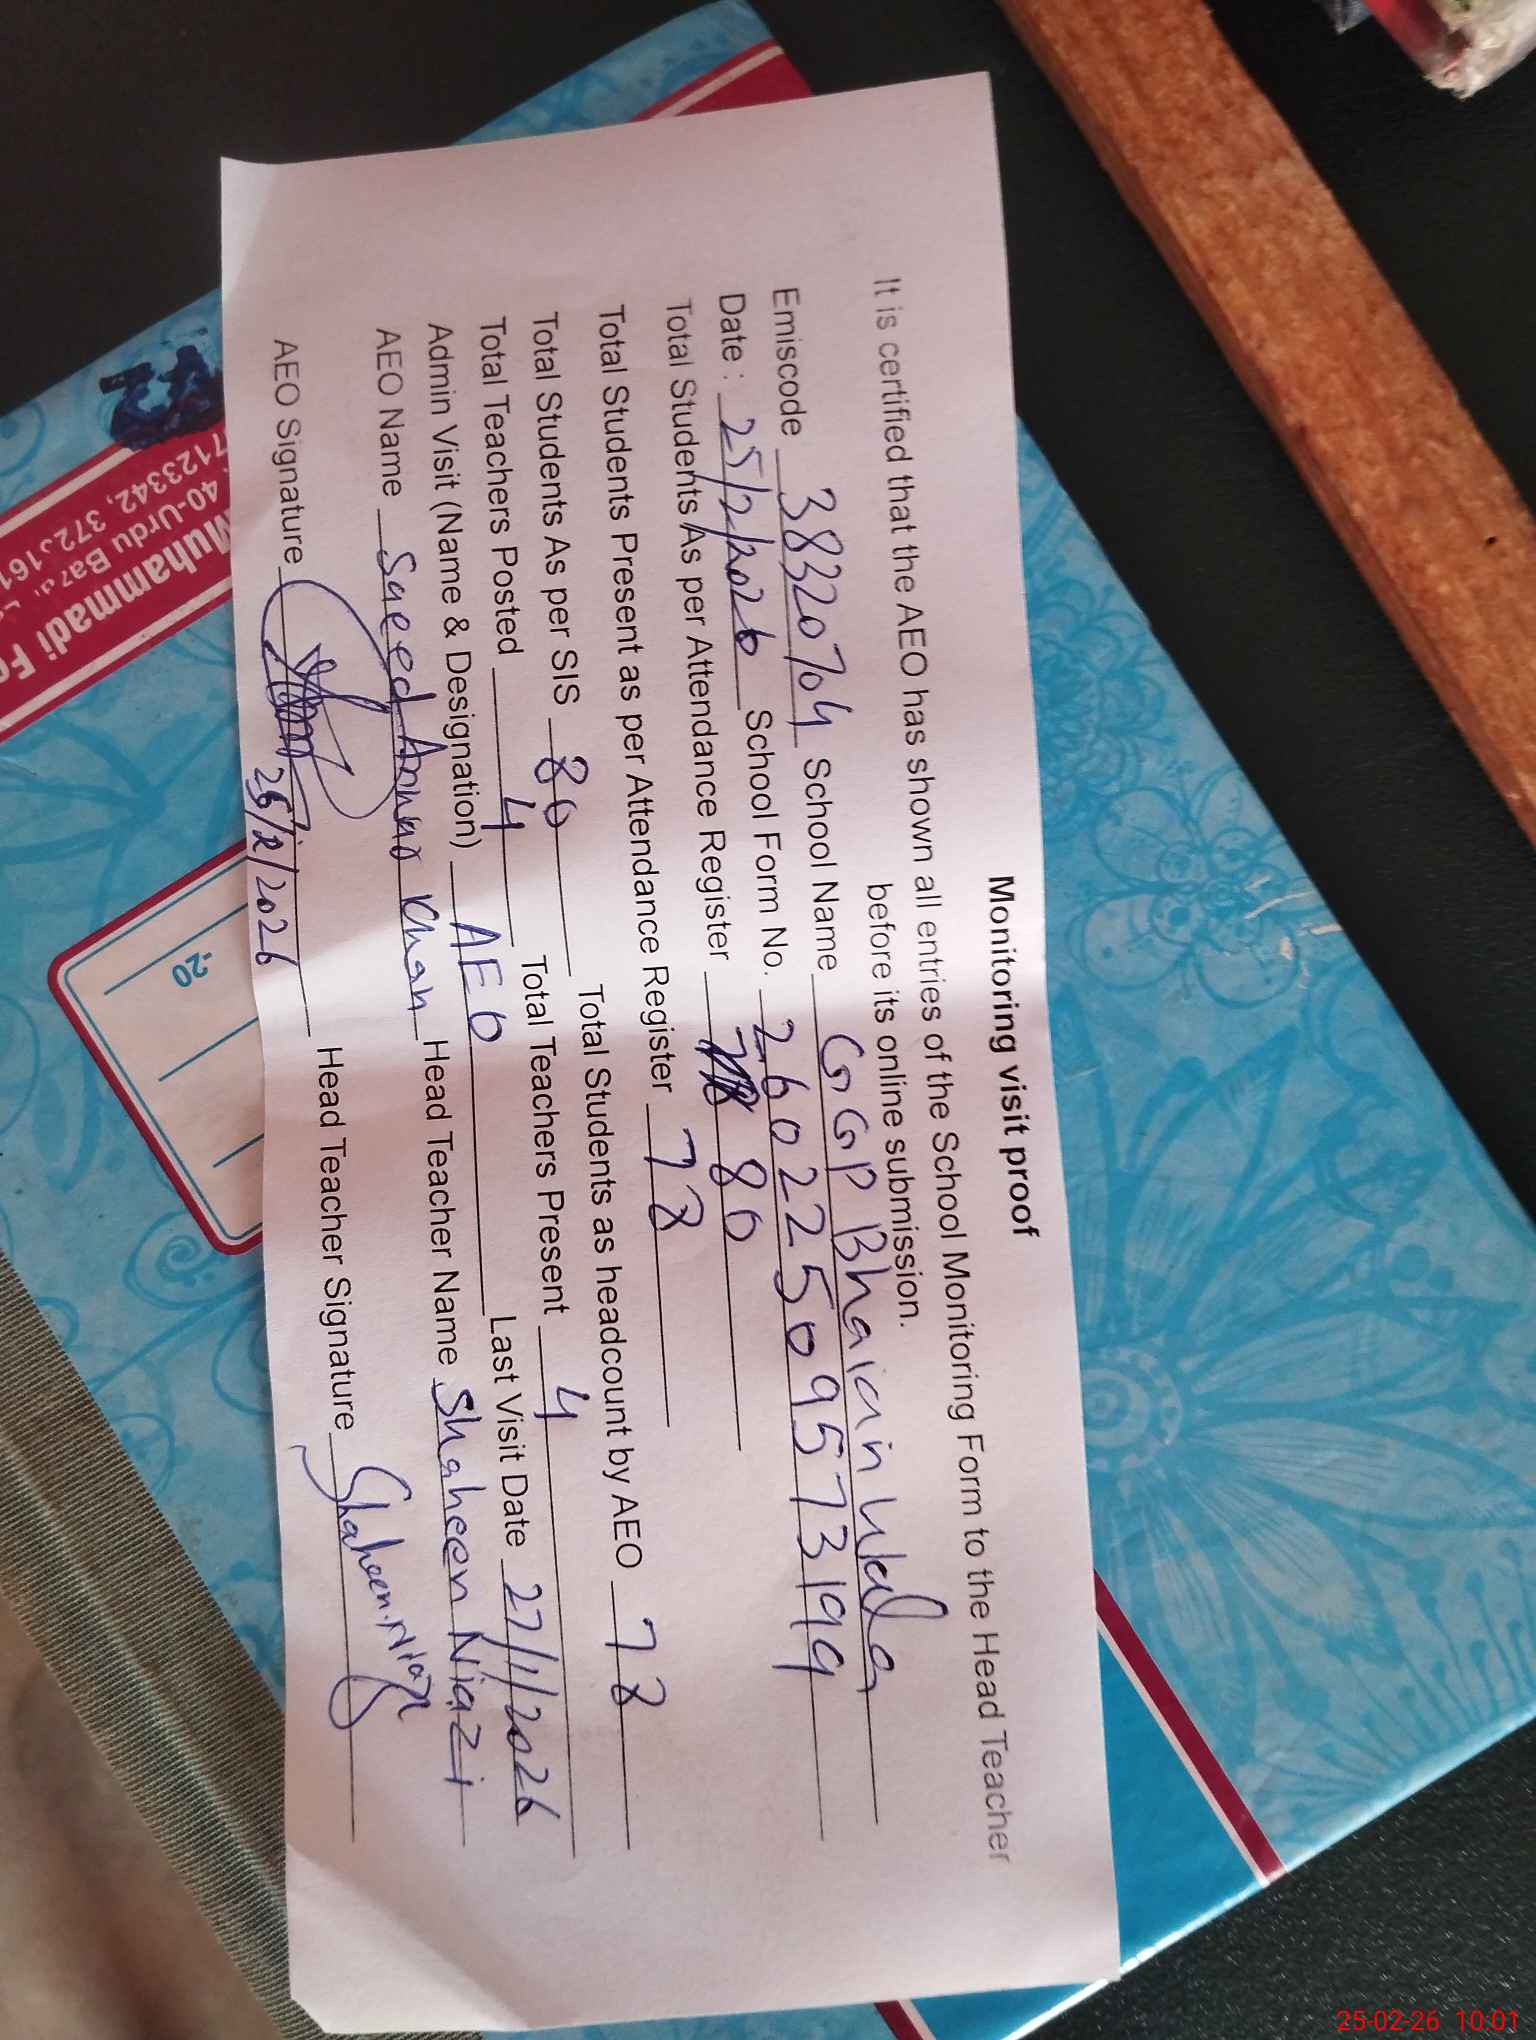 Monitoring visit proof
It is certified that the AEO has shown all entries of the School Monitoring Form to the Head Teacher
before its online submission.
Emiscode 38320704 School Name GGP Bhaianwala
Date : 25/2/2026 School Form No. 26022509573199
Total Students As per Attendance Register 80
Total Students Present as per Attendance Register 78
Total Students As per SIS 80 Total Students as headcount by AEO 78
Total Teachers Posted 4 Total Teachers Present 4
Admin Visit (Name & Designation) AEO Last Visit Date 27/1/2026
AEO Name Saeed Anwar Khan Head Teacher Name Shaheen Niazi
AEO Signature Head Teacher Signature Shaheen Niazi
25/2/2026
Muhammadi
40-Urdu
7123342,
20
25-02-26 10:01